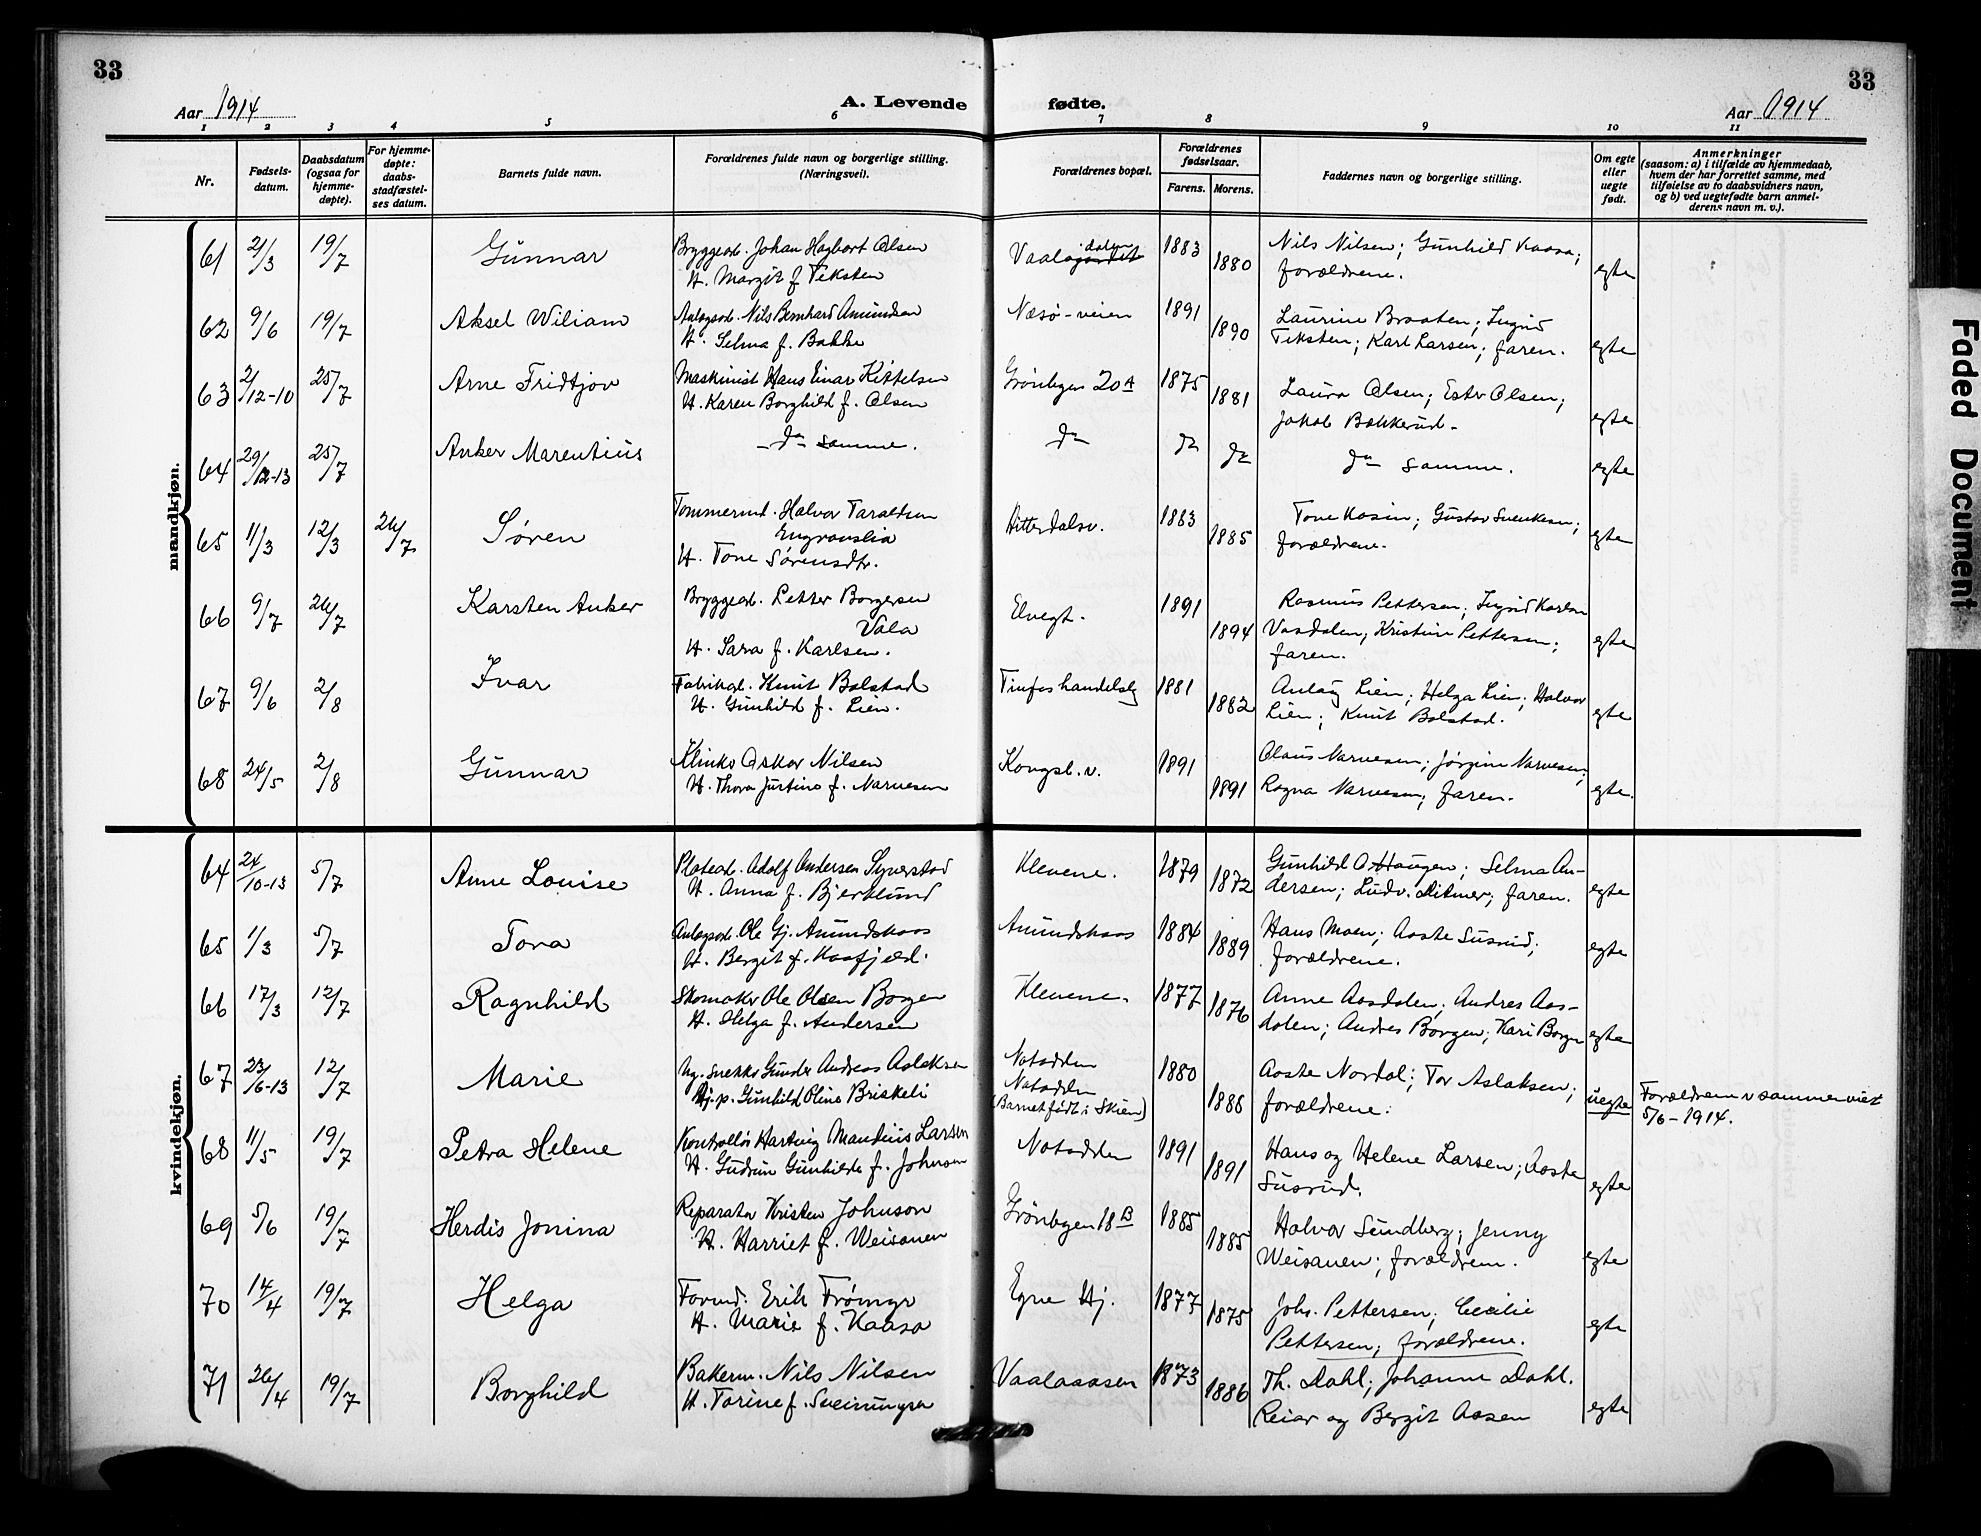 33
33
Aar 1914
A. Levende fødte.
Aar 1914
1 2 3 4 5 6 7 8 9 10 11
Nr.
Fødsels-
datum.
Daabsdatum
(ogsaa for
hjemme-
døpte).
For hjemme-
døpte:
daabs-
stadfæstel-
ses datum.
Barnets fulde navn.
Forældrenes fulde navn og borgerlige stilling.
(Næringsvei).
Forældrenes bopæl.
Forældrenes
fødselsaar.
Farens. Morens.
Faddernes navn og borgerlige stilling.
Om egte
eller
uegte
født.
Anmerkninger
(saasom: a) i tilfælde av hjemmedaab,
hvem der har forrettet samme, med
tilføielse av to daabsvidners navn,
og b) ved uegtefødte barn anmel-
derens navn m. v.).
mandkjøn.
61 21/3 19/7 Gunnar Bryggearb. Johan Hagbart Olsen Vaalo 1883 Nils Nilsen; Gunhild Kaasa;
H. Margit f. Teksten 1880 forældrene. egte
62 9/6 19/7 Aksel Wiliam Anlægsarb. Nils Bernhard Amundsen Næsø-veien 1891 Laurine Braaten; Ingrid
H. Selma f. Bakke 1890 Teksten; Karl Larsen; faren. egte
63 2/12-10 25/7 Arne Fridtjov Maskinist Hans Einar Kittelsen Grønbyen 20A 1875 Laura Olsen; Ester Olsen;
H. Karen Borghild f. Olsen 1881 Jakob Bakkerud. egte
64 29/12-13 25/7 Anker Marentius do samme. do do do do samme. egte
65 11/3 12/3 26/7 Søren Tømmermd. Halvor Taraldsen Hitterdalsv. 1883 Tone Kosin; Gustav Svenkesen;
Engravslia
H. Tone Sørensdtr. 1885 forældrene. egte
66 9/7 26/7 Karsten Anker Bryggearb. Petter Borgersen Elvegt. 1891 Rasmus Pettersen; Ingrid Karlsen
Vala
H. Sara f. Karlsen. 1894 Vasdalen; Kristine Pettersen; egte
faren.
67 9/6 2/8 Ivar Fabrikarb. Knut Bolstad Tinfos handelslg 1881 Aulaug Lien; Helga Lien; Halvor
H. Gunhild f. Lien. 1882 Lien; Knut Bolstad. egte
68 24/5 2/8 Gunnar Oskar Nilsen Kongsb. v. 1891 Olaus Narvesen; Jørgine Narvesen;
H. Thora Justine f. Narvesen 1891 Ragna Narvesen; faren. egte.
kvindekjøn.
64 24/10-13 5/7 Anne Louise Platearb. Adolf Andersen Syverstad Klevene. 1879 Gunhild A. Haugen; Selma An-
H. Anna f. Bjerklund 1872 dersen; Ludv. Ditmer; faren. egte
65 1/3 5/7 Tora Anlægsarb. Ole Gj. Amundskaas Amundskaas 1884 Hans Moen; Aaste Susrud;
H. Bergit f. Kaasfjæld. 1889 forældrene. egte
66 17/3 12/7 Ragnhild Skomaker Ole Olsen Borgen Klevene. 1877 Anne Aasdalen; Andres Aas-
H. Helga f. Andersen 1876 dalen; Andres Borgen; Kari Borgen egte
67 23/6-13 12/7 Marie Ug. snekker Gunder Andreas Aslaksen Notodden 1880 Aaste Nordal; Tor Aslaksen;
Pi. p. Gunhild Oline Briskeli Notodden 1888 forældrene. uegte Forældrene v sammenviet
(Barnet født i Skien) 5/6-1914.
68 11/5 19/7 Petra Helene Kontrollør Hartvig Mandius Larsen Notodden 1891 Hans og Helene Larsen; Aaste
H. Gudrun Gunhilde f. Johnsen 1891 Susrud. egte
69 5/6 19/7 Herdis Jonina Reparatør Kristen Johnson Grønbyen 18B 1885 Halvor Sundberg; Jenny
H. Harriet f. Weisanen 1885 Weisanen; forældrene. egte
70 14/4 19/7 Helga Formd. Erik Frømyr Egne Hj. 1877 Johs. Pettersen; Cecilie
H. Marie f. Kaasa 1875 Pettersen; forældrene. egte
71 26/4 19/7 Borghild Bakerm. Nils Nilsen Vaalaaasen 1873 Th. Dahl; Johanne Dahl.
H. Torine f. Sveinungsen 1886 Reiar og Bergit Aasen egte
Faded Document